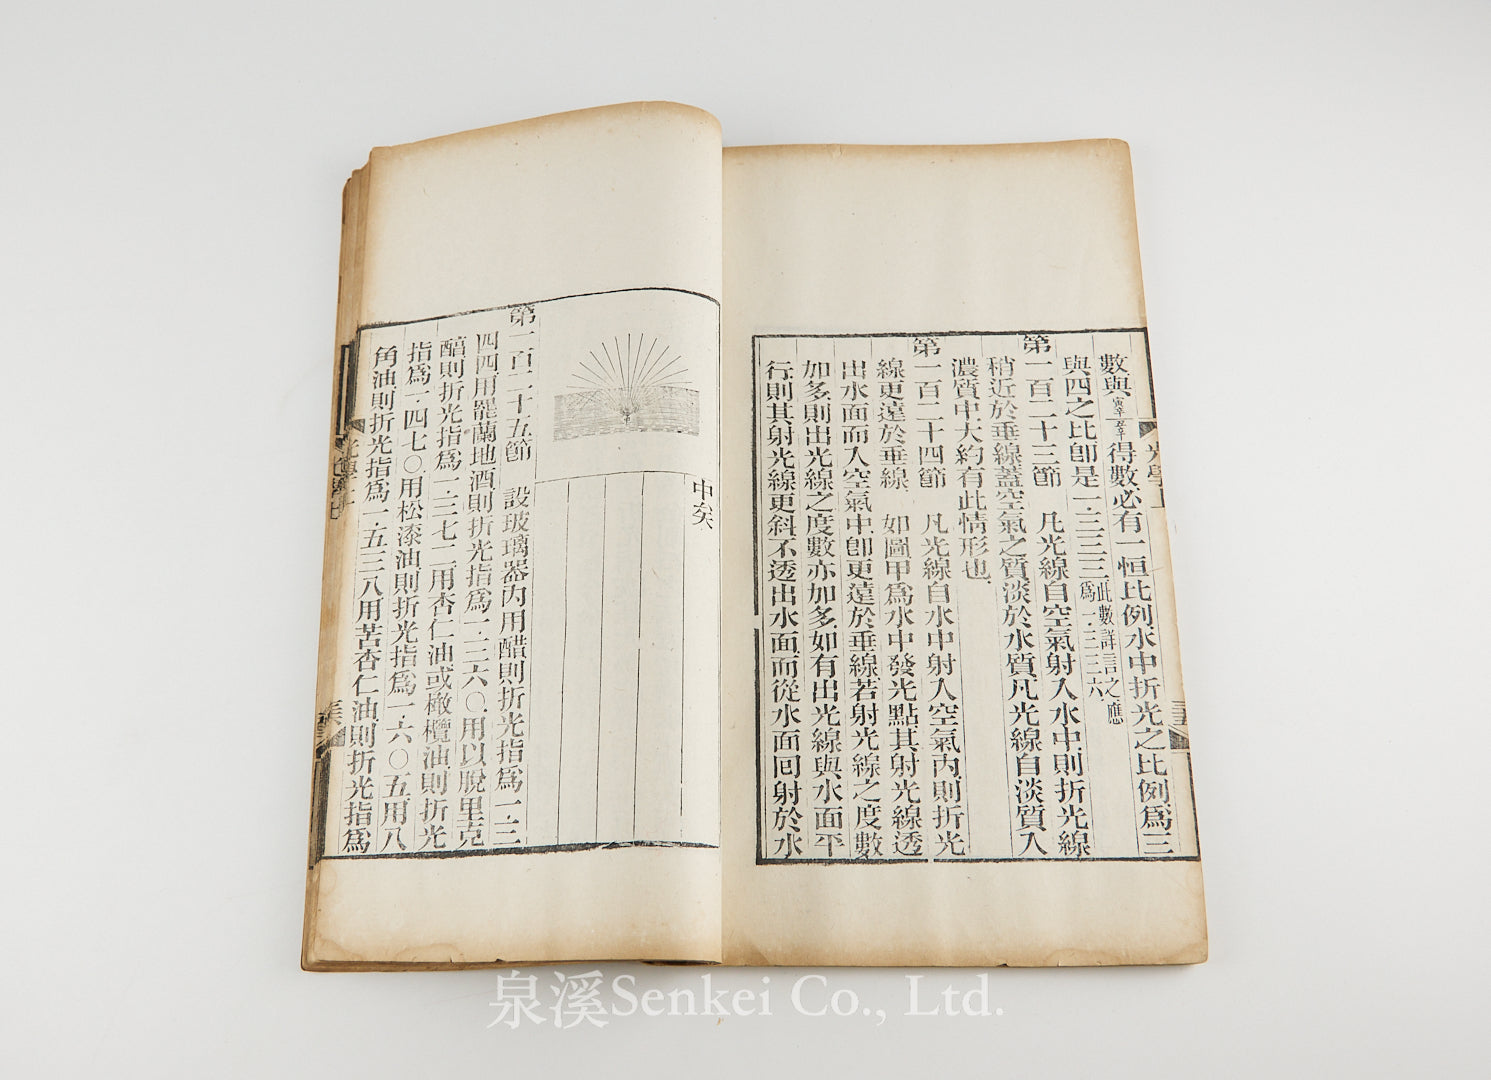 數與寅辛辰辛得數必有一恒比例水中折光之比例爲三
與四之比卽是一.三三三此數詳言之應爲一.三三六
第一百二十三節 凡光線自空氣射入水中則折光線
稍近於垂線蓋空氣之質淡於水質凡光線自淡質入
濃質中大約有此情形也
第一百二十四節 凡光線自水中射入空氣內則折光
線更遠於垂線 如圖甲爲水中發光點其射光線透
出水面而入空氣中卽更遠於垂線若射光線之度數
如多則出光線之度數亦加多如有出光線與水面平
行則其射光線更斜不透出水面而從水面囘射於水
中矣
第一百二十五節 設玻璃器內用醋則折光指爲一.三
四四用罷蘭地酒則折光指爲一.三六〇用以脫里克
醕則折光指爲一.三七二用杏仁油或橄欖油則折光
指爲一.四七〇用松漆油則折光指爲一.六〇五用八
角油則折光指爲一.五三八用苦杏仁油則折光指爲
光學上
泉溪Senkei Co., Ltd.